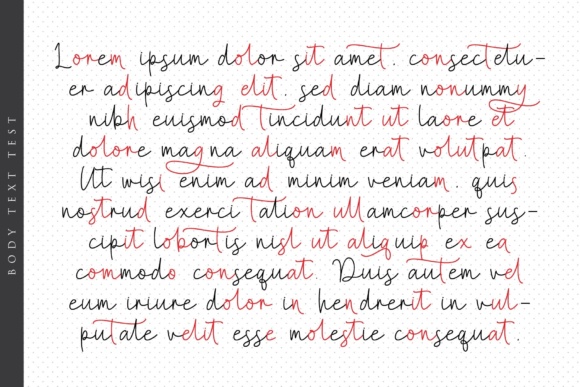 BODY TEXT TEST
Lorem ipsum dolor sit amet. consectetu-
er adipiscing elit. sed diam nonummy
nibh euismod tincidunt ut laore et
dolore magna aliquam erat volutpat.
Ut wisi enim ad minim veniam. quis
nostrud exerci tation ullamcorper sus-
cipit lobortis nisl ut aliquip ex ea
commodo consequat. Duis autem vel
eum iriure dolor in hendrerit in vul-
putate velit esse molestie consequat.